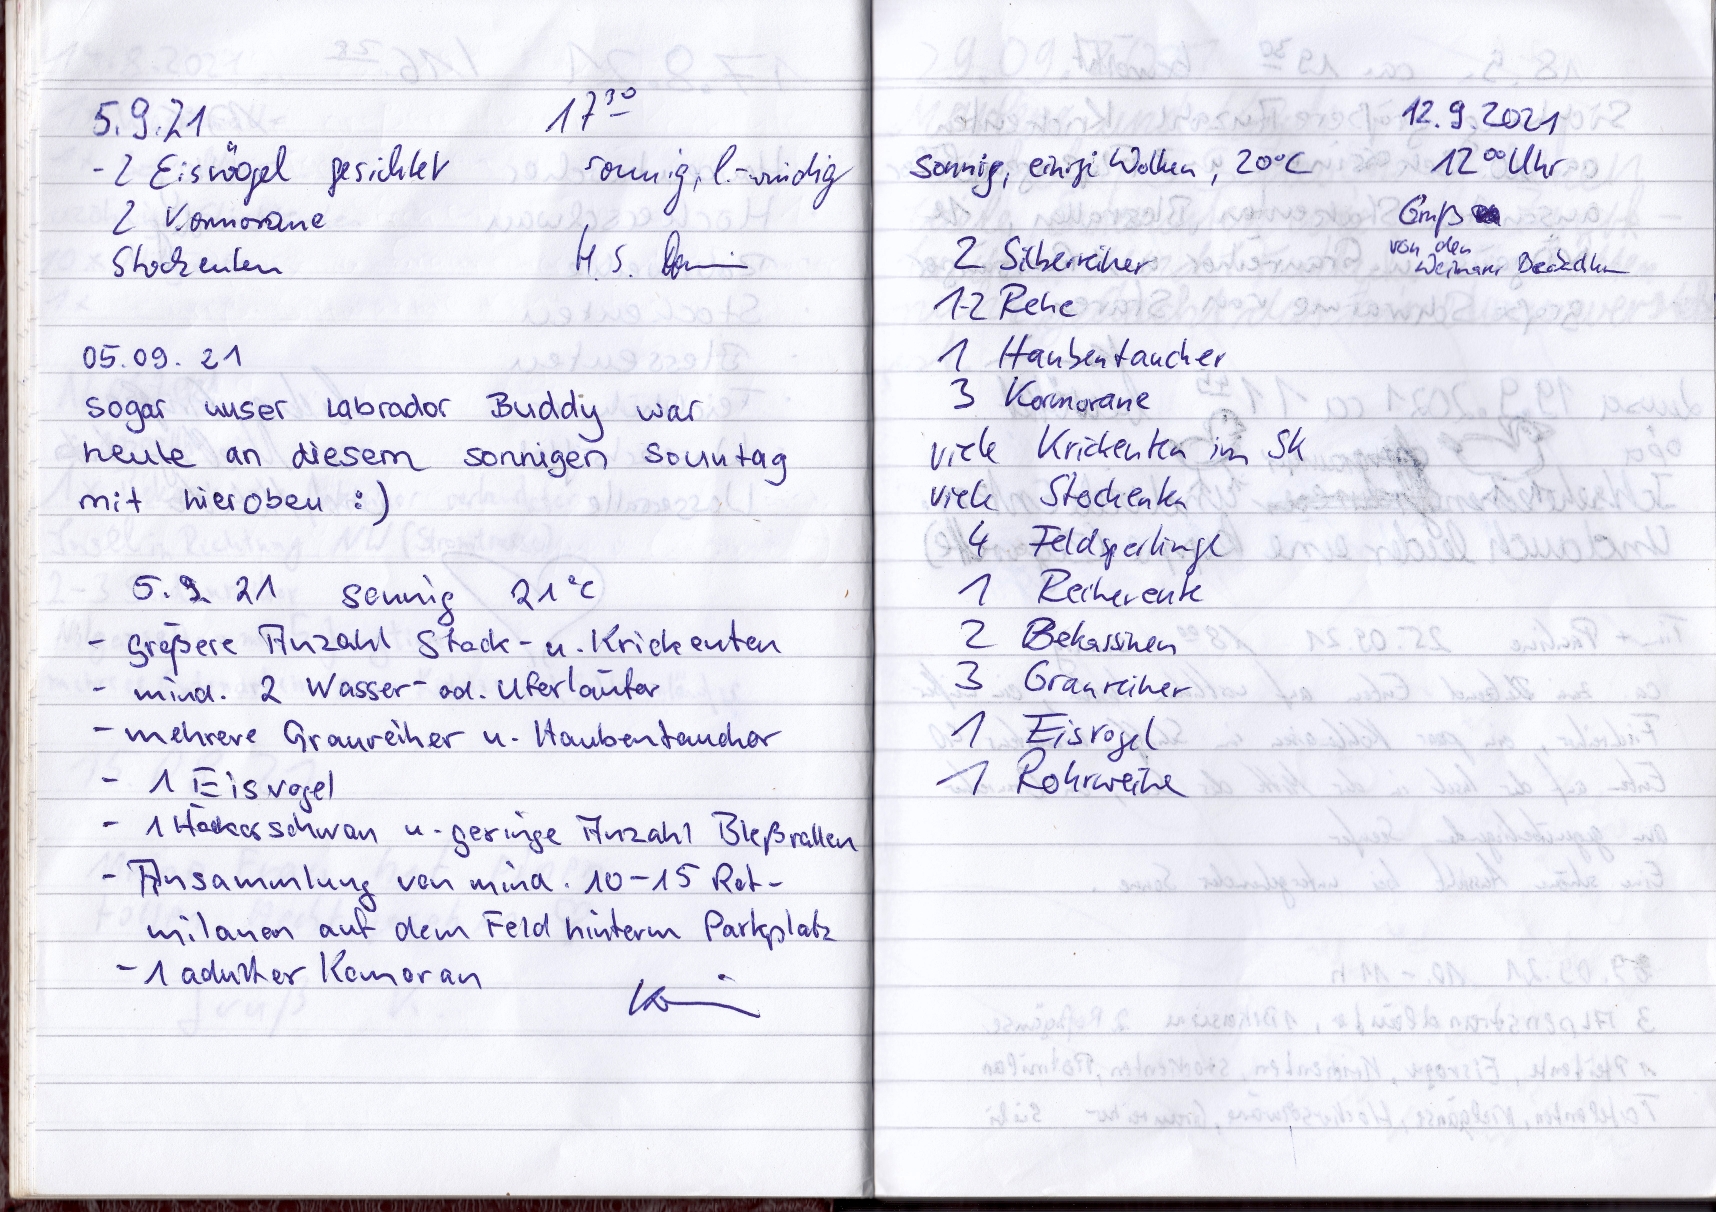 5.9.21 17³⁰
- 2 Eisvögel gesichtet sonnig, l.-windig
2 Kormorane
Stockenten H. S.
05.09.21
sogar unser Labrador Buddy war
heute an diesem sonnigen Sonntag
mit hieroben :)
5.9 21 sonnig 21°C
- größere Anzahl Stock- u. Krickenten
- mind. 2 Wasser- od. Uferläufer
- mehrere Graureiher u. Haubentaucher
- 1 Eisvogel
- 1 Höckerschwan u. geringe Anzahl Bleßrallen
- Ansammlung von mind. 10-15 Rot-
milanen auf dem Feld hinterm Parkplatz
- 1 adulter Komoran
12.9.2021
sonnig, einige Wolken, 20°C 12⁰⁰ Uhr
Gruß
von den
Weimarer
2 Silberreiher
1-2 Rehe
1 Haubentaucher
3 Kormorane
viele Krickenten im SK
viele Stockenten
4 Feldsperlinge
1 Reiherente
2 Bekassinen
3 Graureiher
1 Eisvogel
1 Rohrweihe